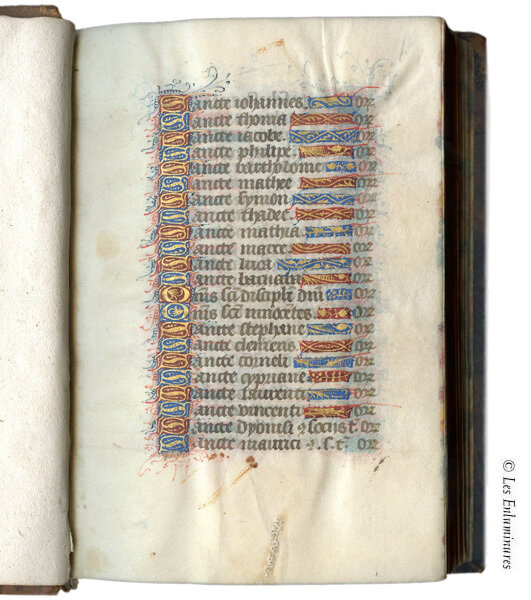 Sancte iohannes. or
Sancte thoma or
Sancte iacobe. or
Sancte philipe or
Sancte bartholome or
Sancte mathee or
Sancte symon. or
Sancte thadee or
Sancte mathia or
Sancte marce or
Sancte luca or
Sancte barnaba or
Omnis sci discipli dni or
Omnis sci innocetes or
Sancte stephane or
Sancte clemens or
Sancte corneli or
Sancte cypriane or
Sancte laurenti or
Sancte vincenti or
Sancte dyonisi ⁊ sociis t. or
Sancte maurici ⁊. s. t. or
© Les Enluminures